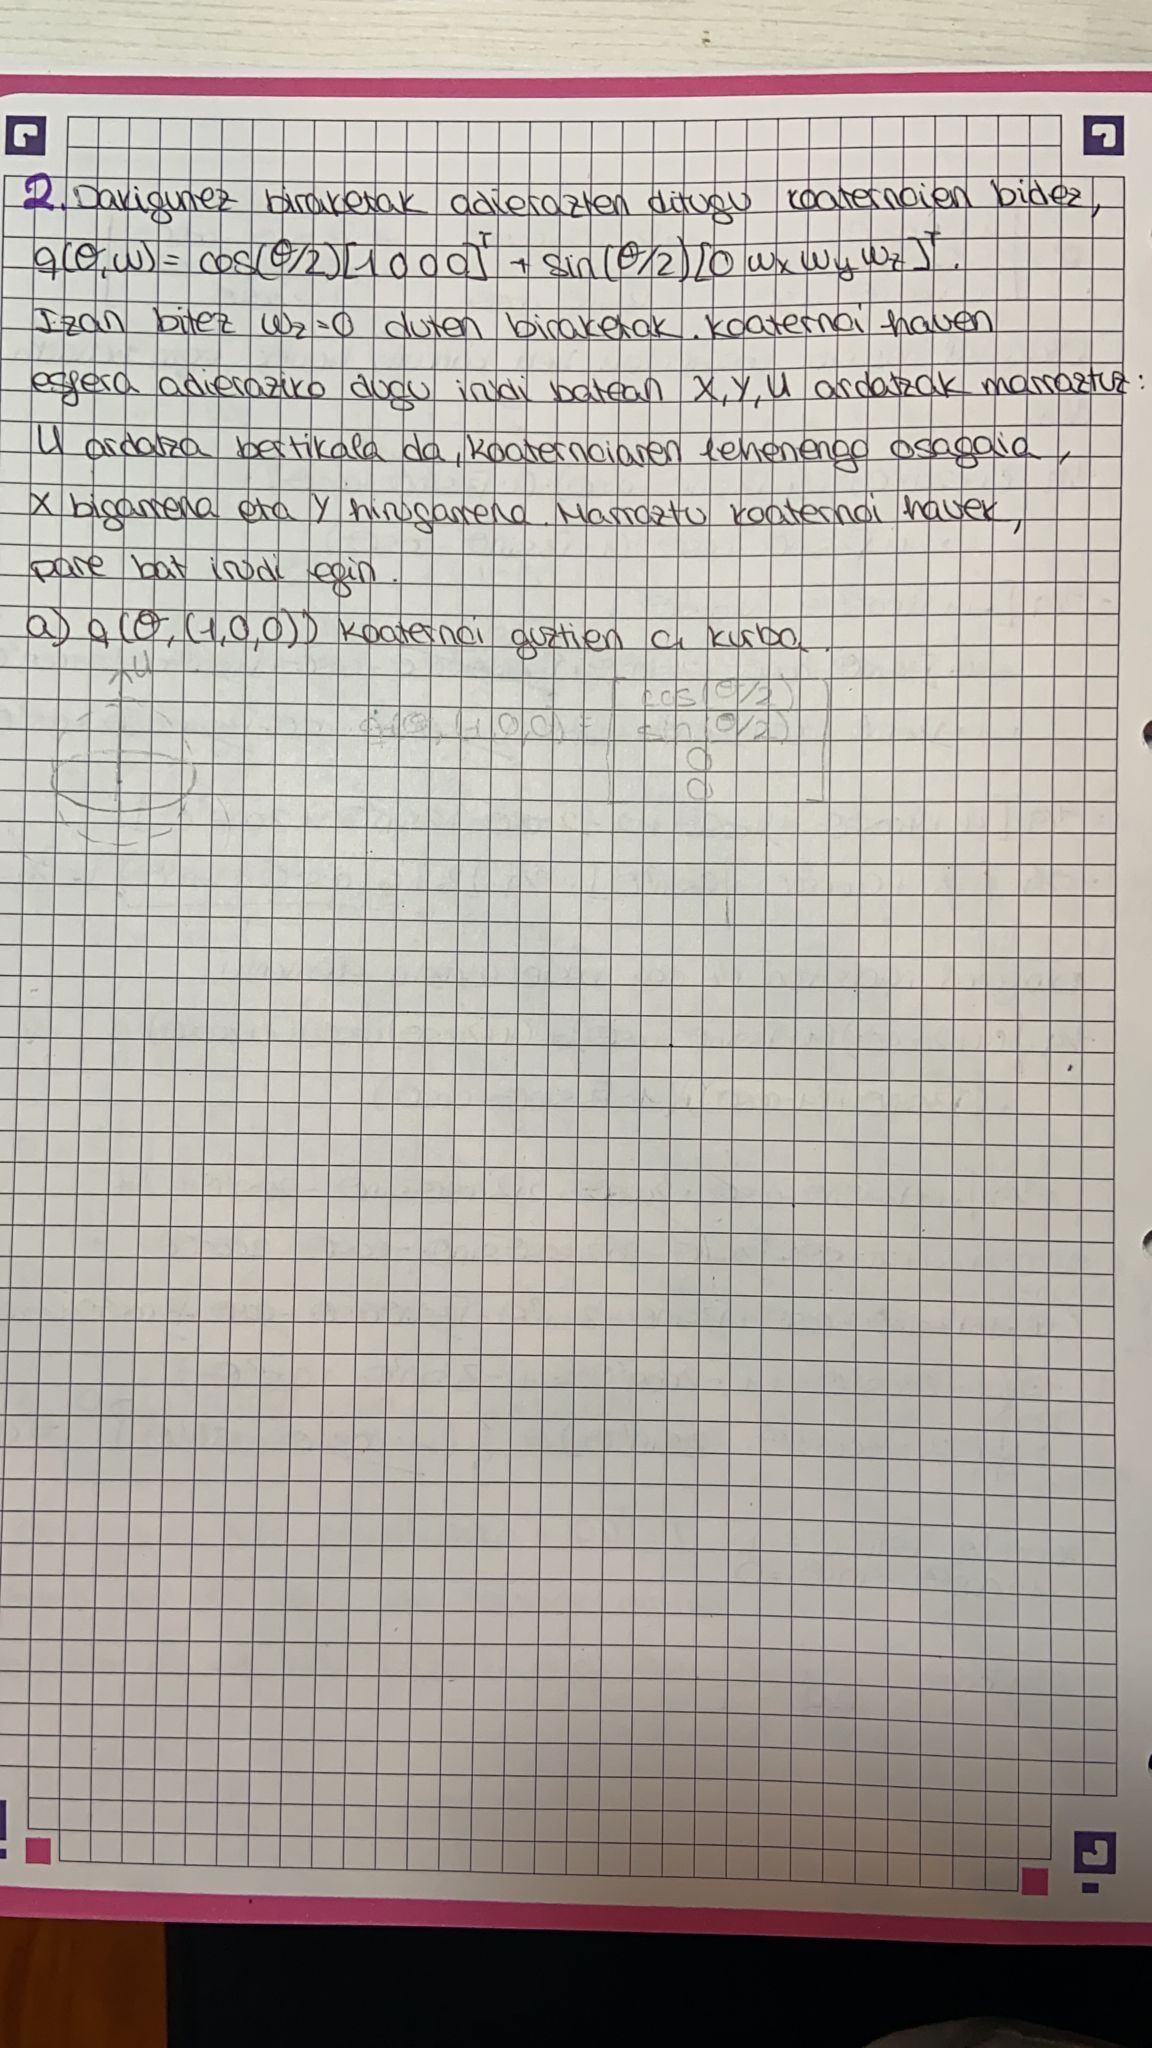 2. Dakigunez biraketak adierazten ditugu koaternoien bidez,
q(θ,w) = cos(θ/2)[1 0 0 0]ᵀ + sin(θ/2)[0 wx wy wz]ᵀ.
Izan bitez wz=0 duten biraketak. Koaternoi hauen
esfera adieraziko dugu irudi batean X, Y, U ardatzak marraztuz:
U ardatza bertikala da, koaternoiaren lehenengo osagaia,
X bigarrena eta Y hirugarrena. Marraztu koaternoi hauek,
pare bat irudi egin.
a) q(θ, (1,0,0)) koaternoi guztien c1 kurba.
U
q(θ, (1,0,0)) = [cos(θ/2)
sin(θ/2)
0
0]